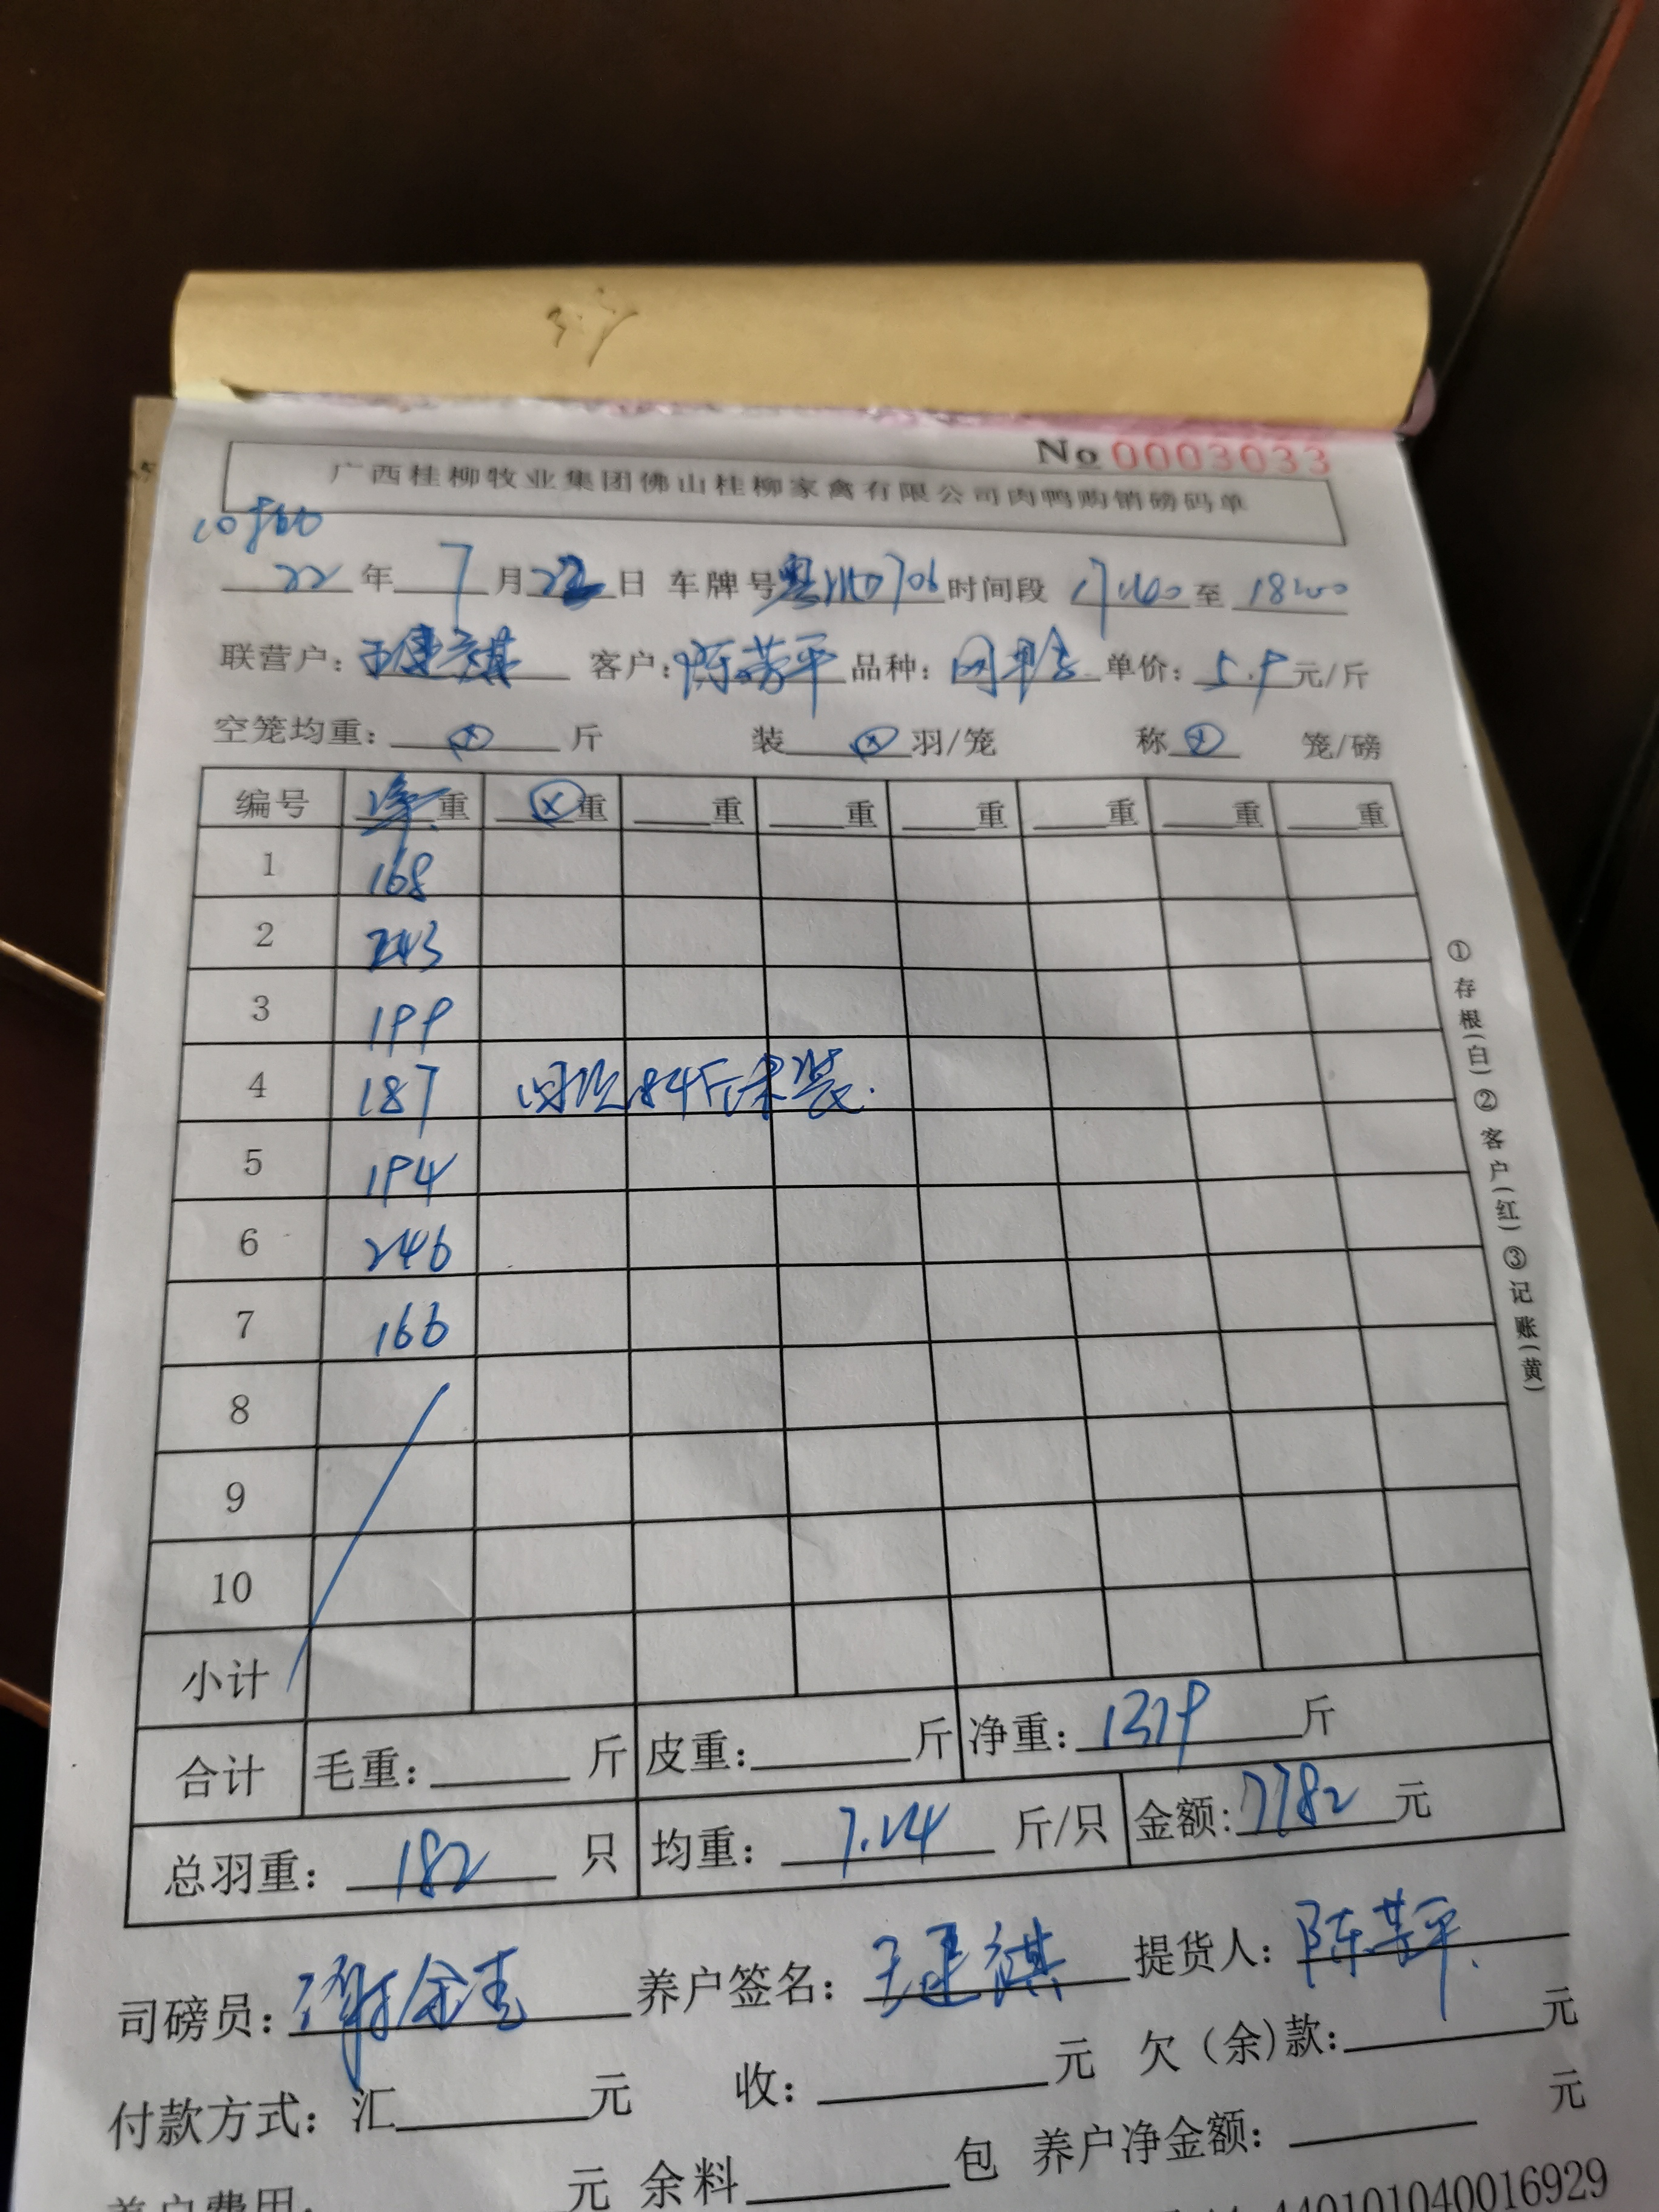 No 0003033
广西桂柳牧业集团佛山桂柳家禽有限公司肉鸭购销磅码单
22 年 7 月 22 日 车牌号 粤 时间段 17:40 至 18:00
联营户: 王建祺 客户: 陈芳平 品种: 单价: 5.9 元/斤
空笼均重: ⊗ 斤 装 ⊗ 羽/笼 称 ⊗ 笼/磅
编号 净重 ⊗重 重 重 重 重 重 重
1 168
2 243
3 199
4 187 84斤未装.
5 194
6 246
7 166
8
9
10
小计
合计 毛重: 斤 皮重: 斤 净重: 1319 斤
总羽重: 182 只 均重: 7.24 斤/只 金额: 7782 元
司磅员: 谢金 养户签名: 王建祺 提货人: 陈芳平
付款方式: 汇 元 收: 元 欠(余)款: 元
养户费用: 元 余料 包 养户净金额: 元
440101040016929
①存根(白)②客户(红)③记账(黄)